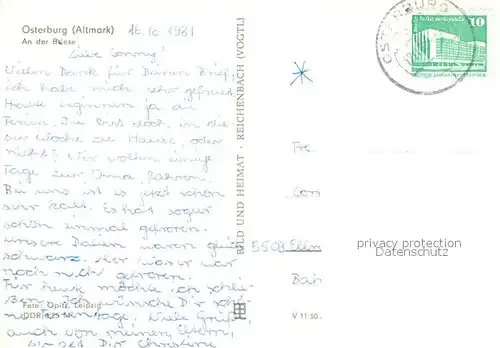 Osterburg (Altmark)
An der Biese
16.10.1981
Liebe Conny!
Vielen Dank für Deinen Brief,
ich habe mich sehr gefreut.
Heute beginnen ja die
Ferien. Du bist doch in die-
ser Woche zu Hause, oder
nicht? Wir wollen einige
Tage zur fahren.
Bei uns ist es jetzt schon
sehr kalt. Es hat sogar
schon einmal gefroren.
unsere Dalien waren ganz
schwarz. Aber Wasser war
noch nicht gefroren.
Für heute möchte ich schlie-
ßen. Ich wünsche Dir schö-
ne Ferientage. Viele Grüße
auch von meinen Eltern,
Dir Christine
Foto: Opitz, Leipzig
DDR
BILD UND HEIMAT · REICHENBACH (VOGTL)
V 11 50
OSTERBURG
10
Palast der Republik
Fre
Con
5503 Ellr
Bah
privacy protection
Datenschutz